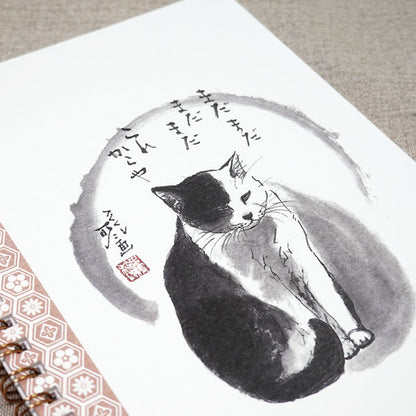 まだまだ
まだまだ
これ
からや